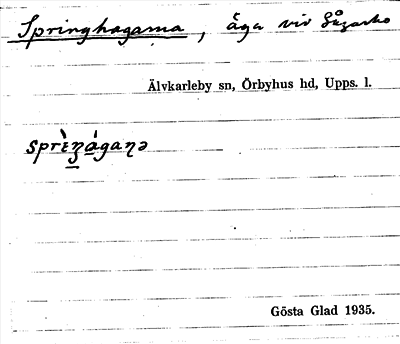 Springhagarna, äga vid Sågarbo
Älvkarleby sn, Örbyhus hd, Upps. l.
sprìŋ̲á̲gaɳə
Gösta Glad 1935.